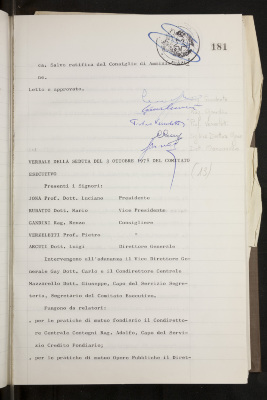 181
ca. Salvo ratifica del Consiglio di
ne.
Letto e approvato.
VERBALE DELLA SEDUTA DEL 3 OTTOBRE 1975 DEL COMITATO
ESECUTIVO
Presenti i Signori:
JONA Prof. Dott. Luciano Presidente
Dott. Mario Vice Presidente
GANDINI Rag. Renzo Consigliere
VERZELETTI Prof. Pietro "
ARCUTI Dott. Luigi Direttore Generale
Intervengono all'adunanza il Vice Direttore Ge-
nerale Gay Dott. Carlo e il Condirettore Centrale
Mazzarello Dott. Giuseppe, Capo del Servizio Segre-
teria, Segretario del Comitato Esecutivo.
Fungono da relatori:
. per le pratiche di mutuo fondiario il Condiretto-
re Centrale Rag. Adolfo, Capo del Servi-
zio Credito Fondiario;
. per le pratiche di mutuo Opere Pubbliche il Diret-